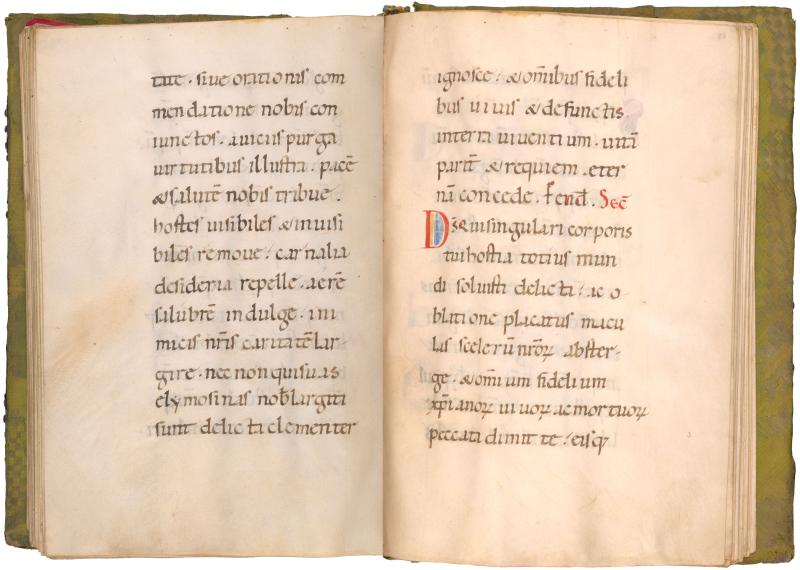 tate · sive orationis com
mendatione nobis con
iunctos · a viciis purga
virtutibus illustra · pacē
& salutē nobis tribue ·
hostes visibiles & invisi
biles remove · carnalia
desideria repelle · aerē
salubrē indulge · ini
micis nr̄is caritatē lar-
gire · nec non qui suas
elymosinas nob̄ largiti
sunt delicti clementer
ignosce · & om̄ibus fideli
bus vivis & defunctis
in terra viventium · vitā
parit̄ & requiem eter
nā concede ·
D̄s qui singulari corporis
tui hostia totius mun
di solvisti delicti · ac o
blatione placatus macu
las scelerū nr̄oꝝ abster-
ge · & om̄ium fidelium
xp̄ianoꝝ vivoꝝ ac mortuoꝝ
peccati dimitte · eisq̣